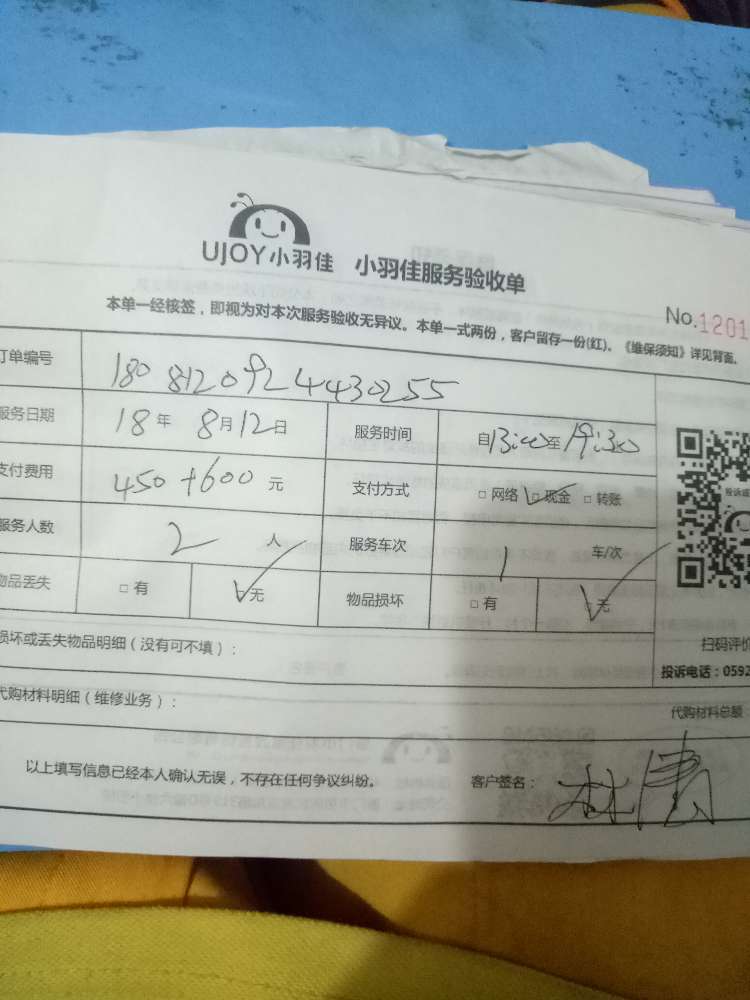 UJOY小羽佳 小羽佳服务验收单
No.1201
本单一经核签，即视为对本次服务验收无异议。本单一式两份，客户留存一份(红)。《维保须知》详见背面。
订单编号 1808120924430255
服务日期 18年 8月12日 服务时间 自13:00至19:30
支付费用 450+600元 支付方式 □网络 □现金 □转账
投诉
服务人数 2人 服务车次 1 车/次
物品丢失 □有 □无 物品损坏 □有 □无
损坏或丢失物品明细（没有可不填）：
扫码评价
投诉电话：0592
代购材料明细（维修业务）：
代购材料总额
以上填写信息已经本人确认无误，不存在任何争议纠纷。 客户签名：